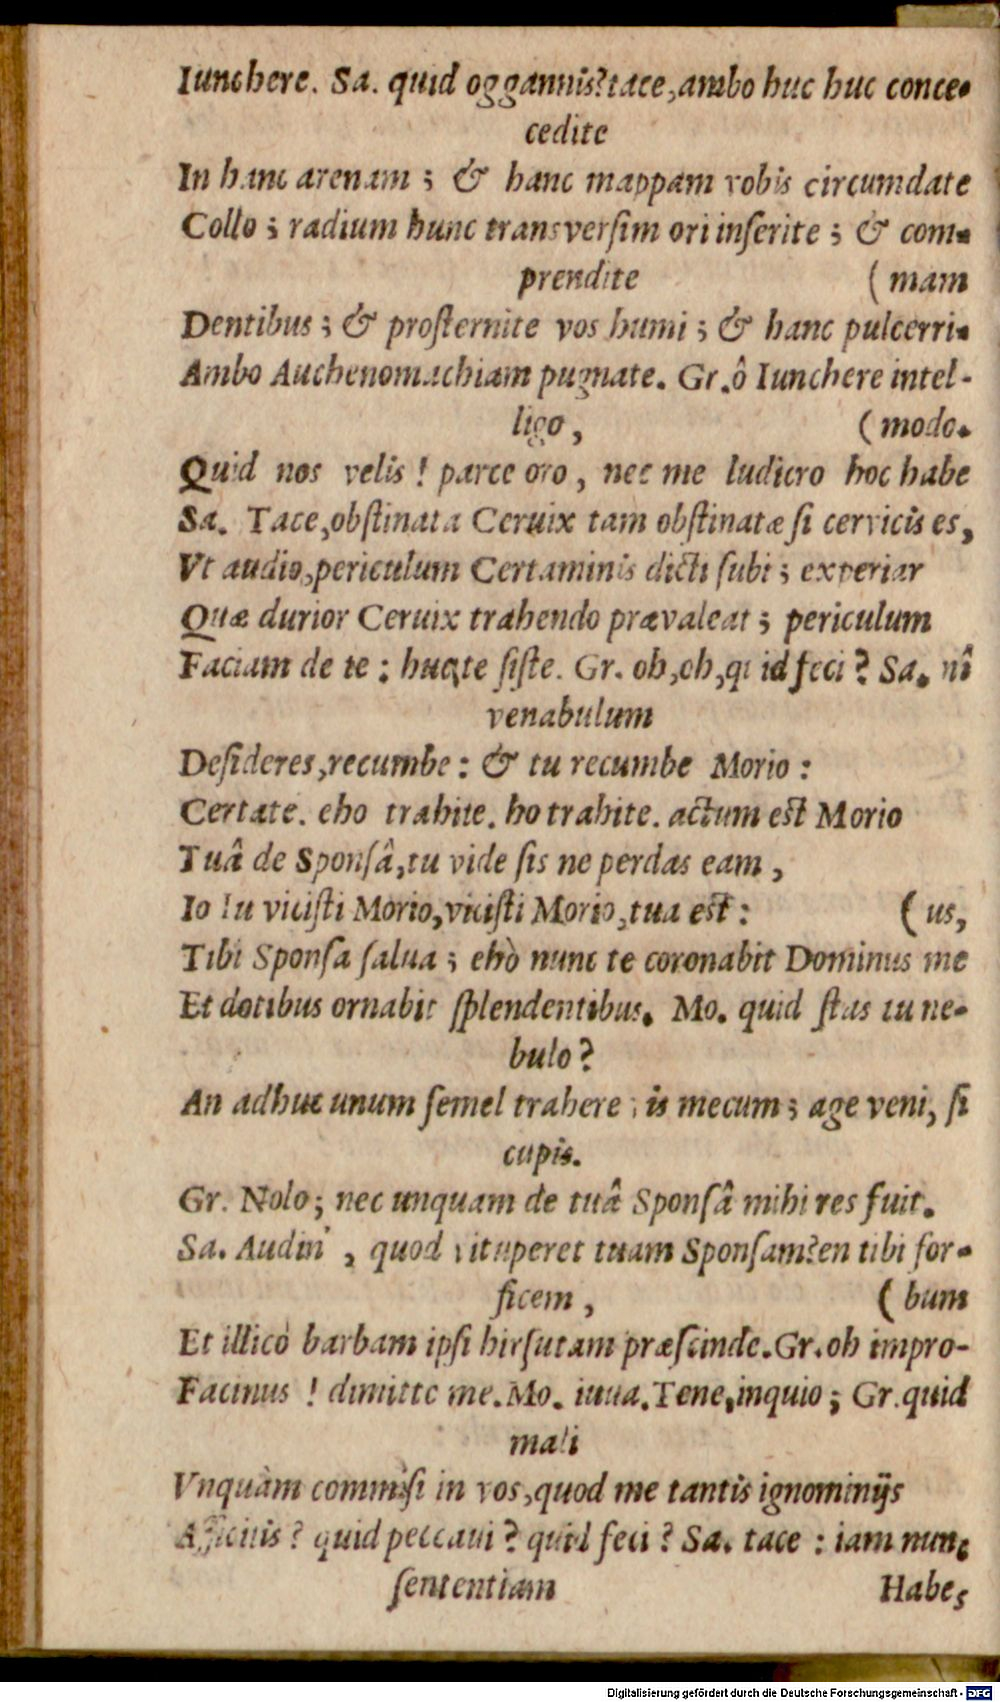 Iunchere. Sa. quid oggannis? tace, ambo huc huc conce-
cedite
In hanc arenam ; & hanc mappam vobis circumdate
Collo ; radium hunc transversim ori inserite ; & com-
prendite ( mam
Dentibus ; & prosternite vos humi ; & hanc pulcerri-
Ambo Auchenomachiam pugnate. Gr. ô Iunchere intel-
ligo, ( modo.
Quid nos velis ! parce oro, nec me ludicro hoc habe
Sa. Tace, obstinata Ceruix tam obstinatæ si cervicis es,
Vt audio, periculum Certaminis dicti subi ; experiar
Quæ durior Ceruix trahendo prævaleat ; periculum
Faciam de te : huc te siste. Gr. oh, oh, quid feci ? Sa. nî
venabulum
Desideres, recumbe : & tu recumbe Morio :
Certate. eho trahite. ho trahite. actum est Morio
Tuâ de Sponsâ, tu vide sis ne perdas eam,
Io Tu vicisti Morio, vicisti Morio, tua est : ( us,
Tibi Sponsa salua ; ehò nunc te coronabit Dominus me
Et dotibus ornabit splendentibus. Mo. quid stas tu ne-
bulo ?
An adhuc unum semel trahere is mecum ; age veni, si
cupis.
Gr. Nolo ; nec unquam de tuâ Sponsâ mihi res fuit.
Sa. Audin', quod vituperet tuam Sponsam? en tibi for-
ficem, ( bum
Et illicò barbam ipsi hirsutam præscinde. Gr. oh impro-
Facinus ! dimitte me. Mo. iuua. Tene, inquio ; Gr. quid
mali
Vnquàm commisi in vos, quod me tantis ignominijs
Afficitis ? quid peccaui ? quid feci ? Sa. tace : iam nunc
sententiam Habe,
Digitalisierung gefördert durch die Deutsche Forschungsgemeinschaft - DFG